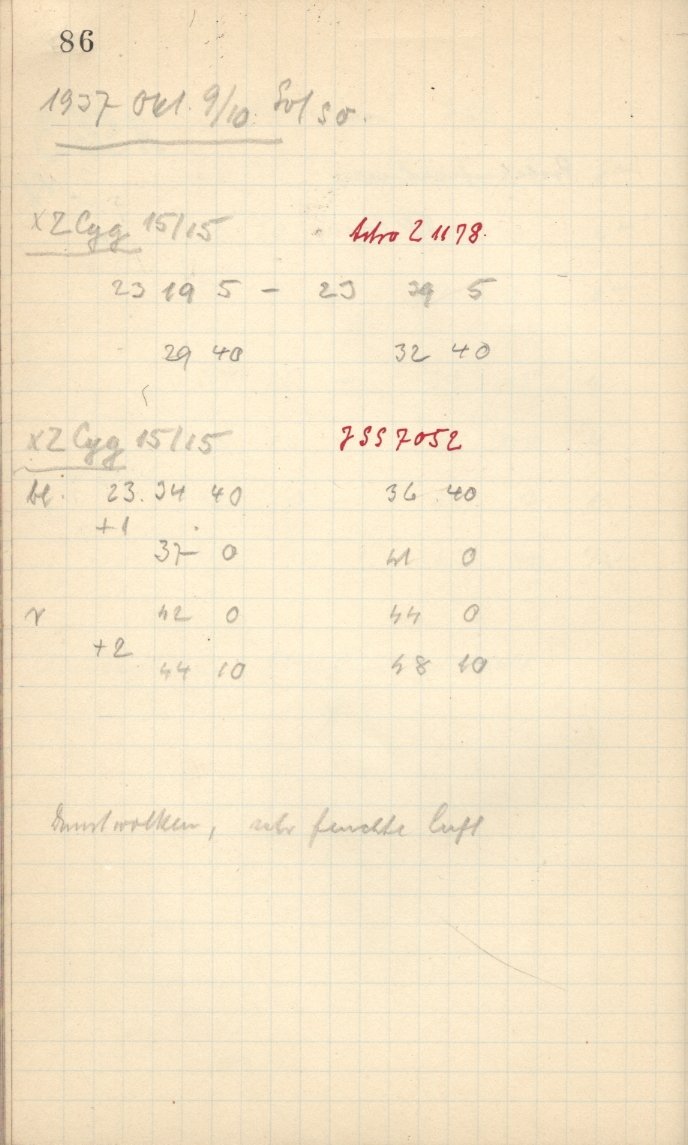 86
1937 Okt. 9/10. So/So.
XZ Cyg 15/15 Astro Z 1178.
23 19 5 – 23 29 5
29 40 32 40
XZ Cyg 15/15 ISS 7052
bl. 23. 34 40 36 40
+1
37 0 41 0
r 42 0 44 0
+2
44 10 48 10
Dunstwolken, sehr feuchte Luft